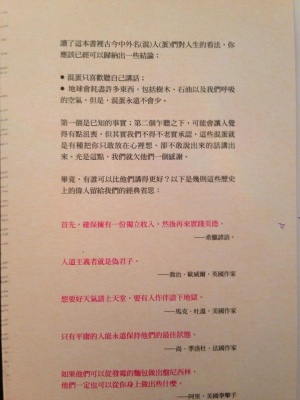 讀了這本書裡古今中外名(混)人(蛋)們對人生的看法，你
應該已經可以歸納出一些結論：
● 混蛋只喜歡聽自己講話；
● 地球會耗盡許多東西，包括樹木、石油以及我們呼吸
的空氣，但是，混蛋永遠不會少。
第一個是已知的事實；第二個乍聽之下，可能會讓人覺
得有點沮喪，但其實我們不得不老實承認，這些混蛋就
是有種把你只敢放在心裡想、卻不敢說出來的話講出
來。光是這點，我們就欠他們一個感謝。
畢竟，有誰可以比他們講得更好？以下是幾則這些歷史
上的偉人留給我們的經典省思：
首先，確保擁有一份獨立收入，然後再來實踐美德。
——希臘諺語。
人道主義者就是偽君子。
——喬治．歐威爾，英國作家
想要好天氣請上天堂，要有人作伴請下地獄。
——馬克．吐溫，美國作家
只有平庸的人能永遠保持他們的最佳狀態。
——尚．季洛杜，法國作家
如果他們可以從發霉的麵包做出盤尼西林，
他們一定也可以從你身上做出些什麼。
——阿里，美國拳擊手